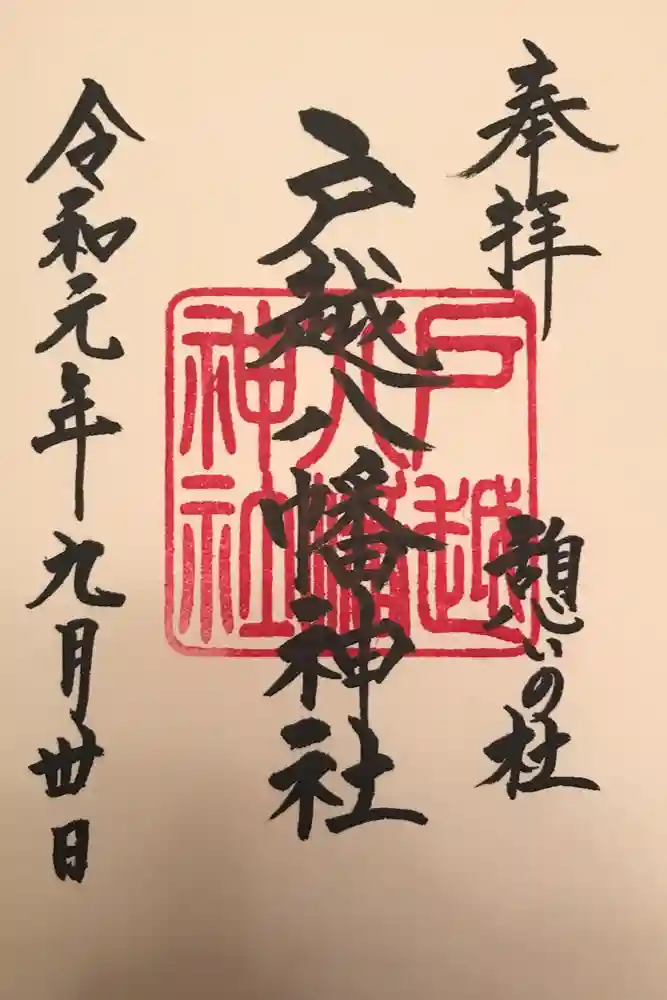 奉拝
憩いの杜
戸越八幡神社
戸越八幡神社
令和元年九月卅日